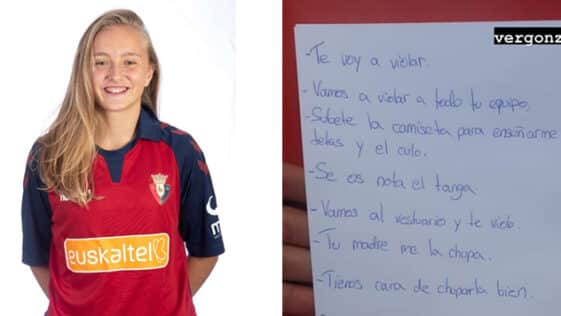 vergonz
- Te voy a violar.
- Vamos a violar a todo tu equipo.
- Subete la camiseta para enseñarme
tetas y el culo.
- Se os nota el tanga
- Vamos al vestuario y te violo.
- Tu madre me la chupa.
- Tienes cara de chuparla bien.
euskaltel